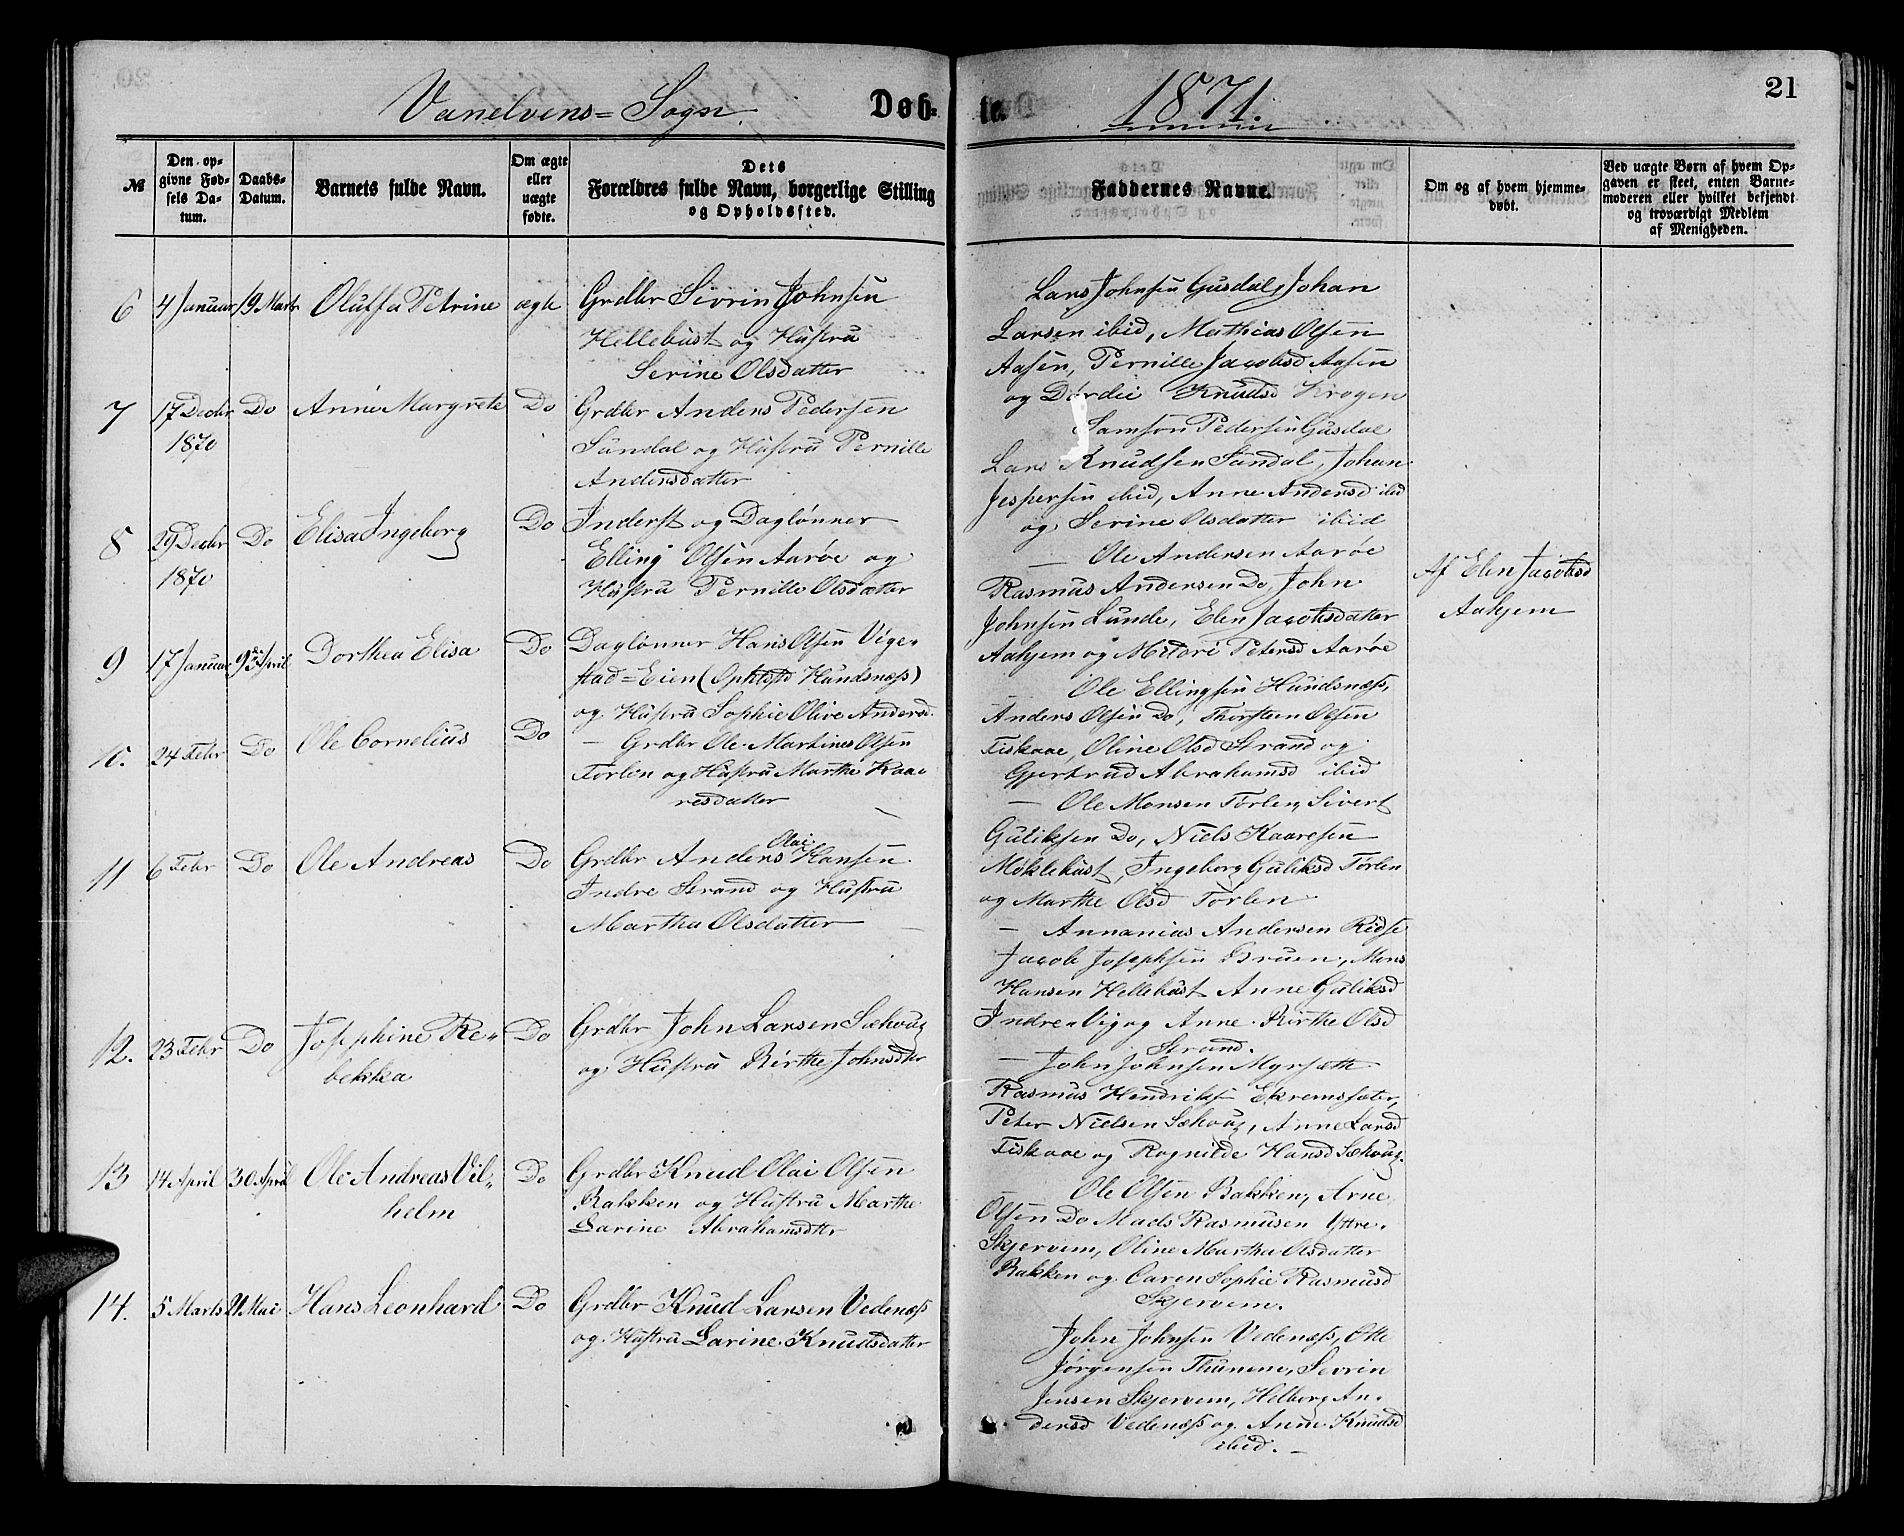 Vanelvens=Sogn. Døb- te. 1871. 21
№
Den opgivne Fødsels Datum.
Daabs-Datum.
Barnets fulde Navn.
Om ægte eller uægte fødte.
Dets Forældres fulde Navn, borgerlige Stilling og Opholdssted.
Faddernes Navne.
Om og af hvem hjemmedøbt.
Ved uægte Børn af hvem Opgaven er skeet, enten Barnemoderen eller hvilket bekjendt og troværdigt Medlem af Menigheden.
6 4 Januar 19 Marts Oluffa Petrine ægte Grdbr Sivrin Johnsen
Hellebust og Hustru
Serine Olsdatter
Lars Johnsen Gusdal, Johan
Larsen ibid, Mathias Olsen
Aasen, Pernille Jacobsd Aasen
og Dordei Knudsd Krogen
7 17 Decbr 1870 Do Anne Margrete Do Grdbr Anders Pedersen
Sundal og Hustru Pernille
Andersdatter
Samson Pedersen Gusdal
Lars Knudsen Sundal, Johan
Jespersen ibid, Anne Andersd ibid
og Serine Olsdatter ibid
8 29 Decbr 1870 Do Elisa Ingeborg Do Inderst og Daglønner
Elling Olsen Aarøe og
Hustru Pernille Olsdatter
— Ole Andersen Aarøe
Rasmus Andersen Do, John
Johnsen Lunde, Elen Jacobsdatter
Aahjem og Petersd Aarøe
Af Elen Jacobsd
Aahjem
9 17 Januar 9de April Dorthea Elisa Do Daglønner Hans Olsen Vige-
stad=Eien (Opholdsst Hundsnæss)
og Hustru Sophie Olive Andersd.
Ole Ellingsen Hundsnæss,
Anders Olsen Do, Thorsteen Olsen
Fiskaae, Oline Olsd Strand og
Gjertrud Abrahamsd ibid
10. 24 Febr Do Ole Cornelius Do — Grdbr Ole Martines Olsen
Førlen og Hustru Marthe Kaa-
resdatter
— Ole Monsen Førlen, Sivert
Guliksen Do, Niels Kaaresen
Møklebust, Ingeborg Guliksd Førlen
og Marthe Olsd Førlen
11 6 Febr Do Ole Andreas Do Grdbr Anders Olai Hansen
Indre Strand og Hustru
Martha Olsdatter —
— Annanias Andersen Ridse
Jacob Josephsen Bruen, Mons
Hansen Hellebust Anne Guliksd
Indre-Vig og Anne Birthe Olsd
Strand.
12. 23 Febr Do Josephine Re-
bekka
Do Grdbr John Larsen Sæhoug
og Hustru Birthe Johnsdtr
— John Johnsen Myrsæth
Rasmus Hendriks Ekremsæter,
Peter Nielsen Sæhoug, Anne Larsd
Fiskaae og Ragnilde Hansd Sæhoug.
13 14 April 30 April Ole Andreas Vil-
helm
Do Grdbr Knud Olai Olsen
Bakken og Hustru Marthe
Larine Abrahamsdtter
Ole Olsen Bakken, Arne
Olsen Do Mads Rasmusen Yttre-
Skjervem, Oline Martha Olsdatter
Bakken og Caren Sophie Rasmusd
Skjervem.
14. 5 Marts 21 Mai Hans Leonhard Do Grdbr Knud Larsen Vedenæss
og Hustru Larine Knudsdatter
John Johnsen Vedenæss, Otte
Jørgensen Thunem, Sevrin
Jensen Skjervem, Helborg An-
dersd Vedenæss og Anne Knudsd
ibid. —